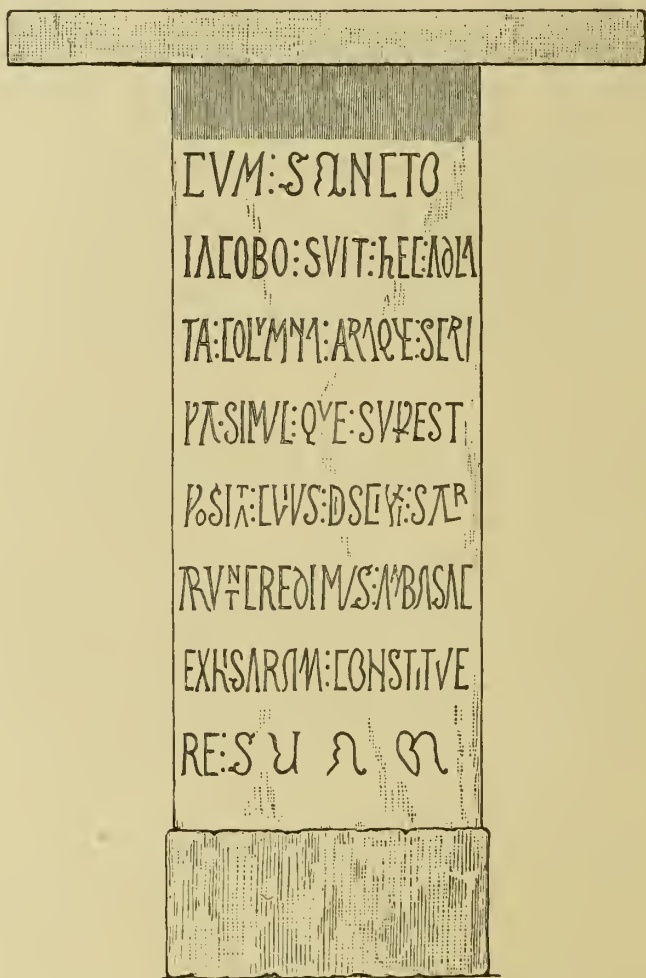 CVM:SANCTO
IACOBO:SVIT:hEC:ADLA
TA:COLVMNA:ARAQVE:SCRI
PTA·SIMVL:QVE:SVPEST
POSITA:CVIVS:DISCIPVLI:SACR
ARVNT CREDIMVS:AMBASAC
EXHISARAM:CONSTITVE
RE:SUAM